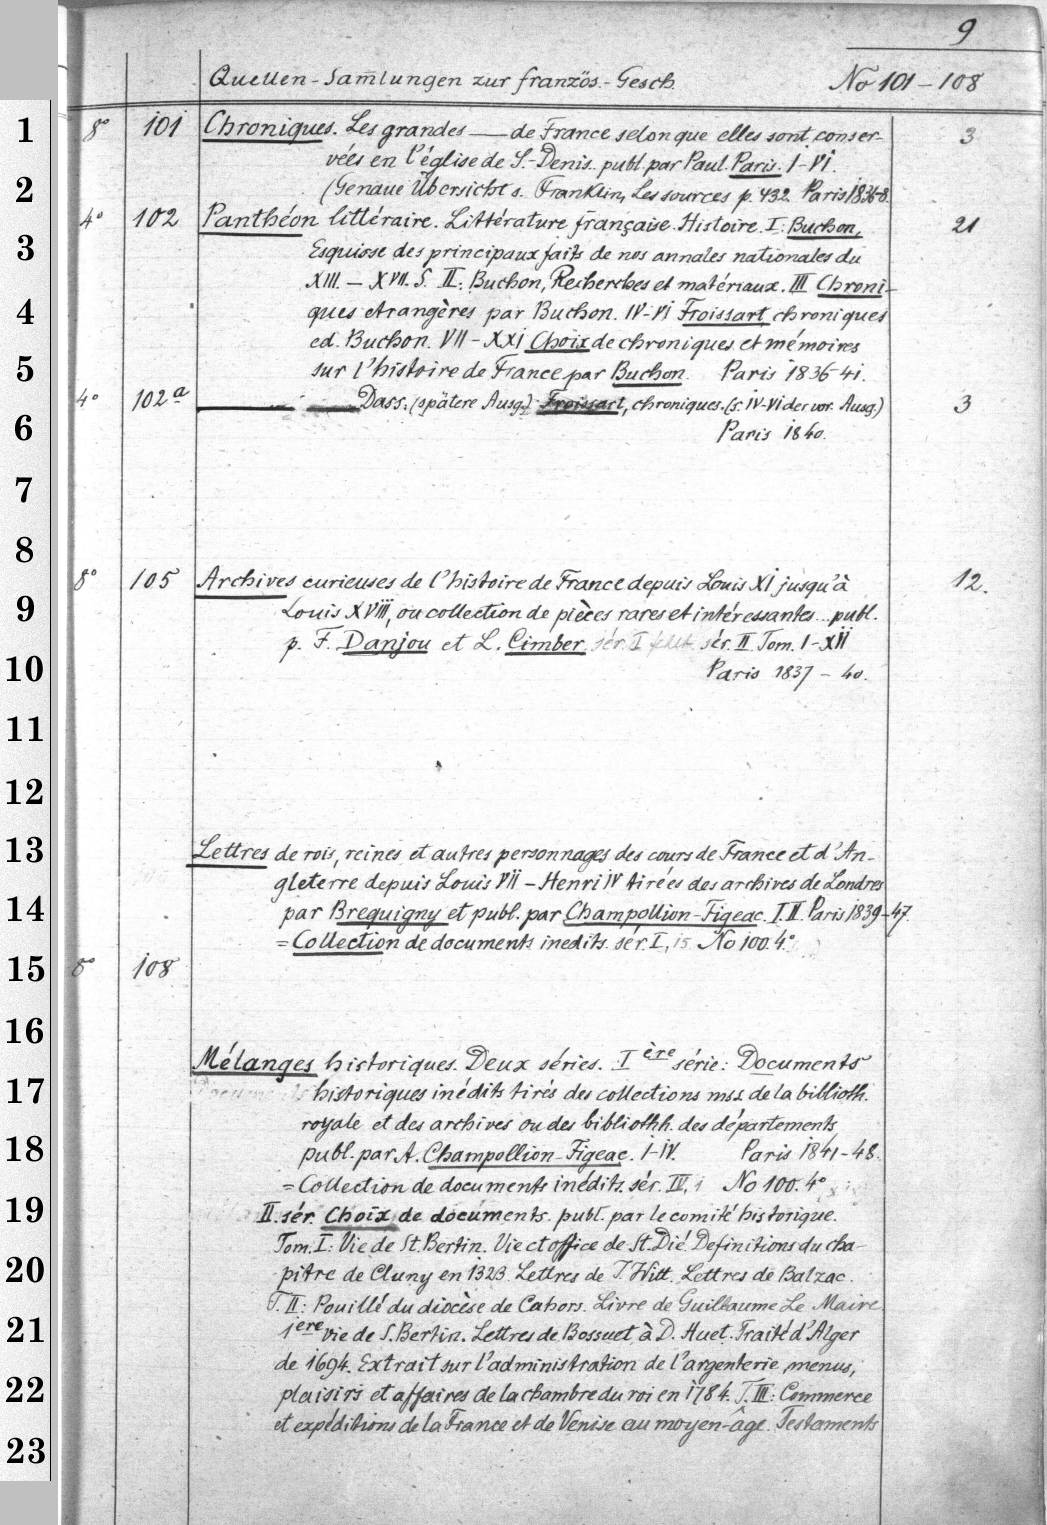 9
Quellen-Sam̄lungen zur französ.-Gesch. No 101-108
1 8° 101 Chroniques. Les grandes — de France selon que elles sont conser- 3
vées en l'église de S.-Denis. publ. par Paul. Paris. I-VI.
2 (Genaue Übersicht s. Franklin, Les sources p. 432. Paris 1836-8.
4° 102 Panthéon littéraire. Littérature française. Histoire. I: Buchon, 21
3 Esquisse des principaux faits de nos annales nationales du
XIII. — XVII. S. II: Buchon, Recherches et matériaux. III Chroni-
4 ques etrangères par Buchon. IV-VI Froissart, chroniques
ed. Buchon. VII - XXI Choix de chroniques et mémoires
5 sur l'histoire de France par Buchon. Paris 1836-41.
4° 102a — — Dass. (spätere Ausg.) Froissart, chroniques. (s. IV-VI der vor. Ausg.) 3
6 Paris 1840.
7
8
8° 105 Archives curieuses de l'histoire de France depuis Louis XI jusqu'à 12.
9 Louis XVIII, ou collection de pièces rares et intéressantes... publ.
p. F. Danjou et L. Cimber. sér. I sér. II Tom. I-XII
10 Paris 1837 - 40.
11
12
13 Lettres de rois, reines et autres personnages des cours de France et d'An-
gleterre depuis Louis VII - Henri IV tirées des archives de Londres
14 par Brequigny et publ. par Champollion-Figeac. I. II. Paris 1839-47.
= Collection de documents inedits. sér. I, 15. No 100. 4°
15 8° 108
16
Mélanges historiques. Deux séries. I ère série: Documents
17 historiques inédits tirés des collections mss. de la biblioth.
royale et des archives ou des bibliothh. des départements
18 publ. par A. Champollion-Figeac. I-IV. Paris 1841-48.
= Collection de documents inédits. sér. IV, 1 No 100. 4°
19 II. sér. Choix de documents. publ. par le comité historique.
Tom. I: Vie de St. Bertin. Vie et office de St. Dié. Definitions du cha-
20 pitre de Cluny en 1323. Lettres de J. Witt. Lettres de Balzac.
T. II: Pouillé du diocèse de Cahors. Livre de Guillaume Le Maire
21 1ere vie de S. Bertin. Lettres de Bossuet à D. Huet. Traité d'Alger
de 1694. Extrait sur l'administration de l'argenterie, menus,
22 plaisirs et affaires de la chambre du roi en 1784. T. III: Commerce
et expéditions de la France et de Venise au moyen-âge. Testaments
23